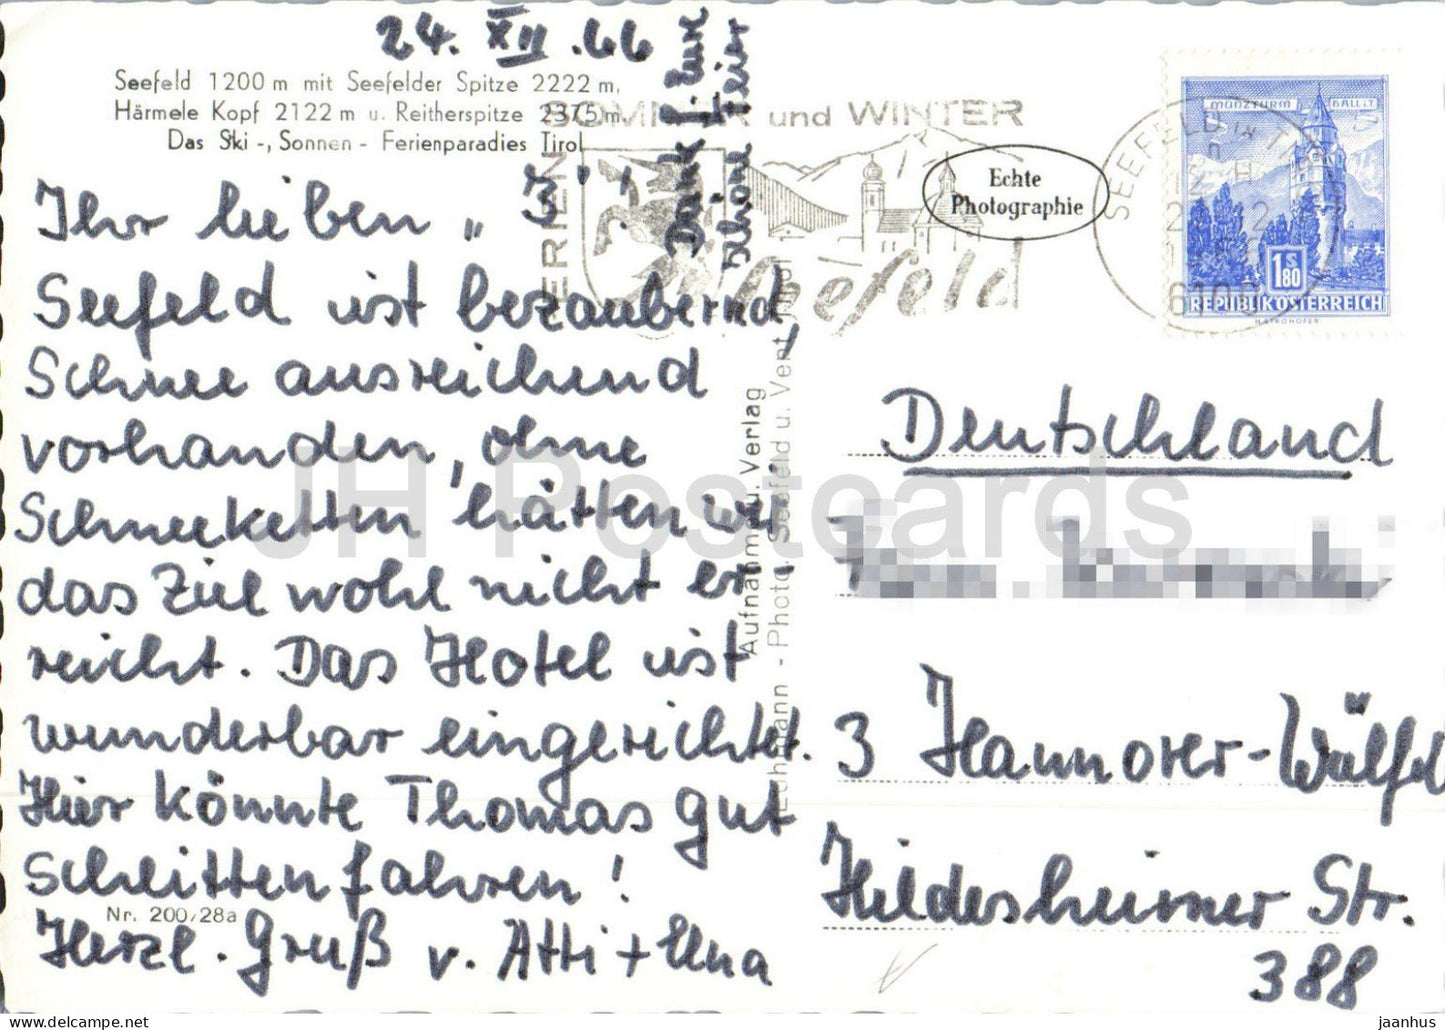 24. XII .66
Seefeld 1200 m mit Seefelder Spitze 2222 m,
Härmele Kopf 2122 m u. Reitherspitze 2375 m
Das Ski -, Sonnen - Ferienparadies Tirol
Ihr lieben „ 3 "!
Seefeld ist bezaubernd,
Schnee ausreichend
vorhanden, ohne
Schneeketten hätten wir
das Ziel wohl nicht er-
reicht. Das Hotel ist
wunderbar eingerichtet.
Hier könnte Thomas gut
Schlittenfahren!
Nr. 200/28a
Herzl. Gruß v. Atti + Una
Dank f. Eure
schöne Feier
Aufnahme u. Verlag
- Photo. Seefeld u. Vent
SOMMER und WINTER
FERIEN
Seefeld
Echte
Photographie
SEEFELD in TIROL
6100
MÜNZTURM HALL i.T.
1 S 80
REPUBLIK ÖSTERREICH
Deutschland
3 Hannover-Wülfel
Hildesheimer Str.
388
JH Postcards
https://www.jhpostcards.com
jaanhus